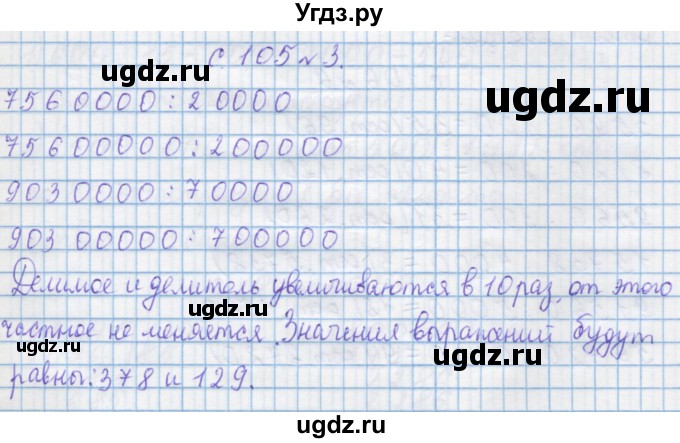 Угдз.ру
с 105 № 3.
ugdz.ru
7560000 : 20000
ugdz.ru
75600000 : 200000
9030000 : 70000
90300000 : 700000
Делимое и делитель увеличиваются в 10 раз, от этого
частное не меняется. Значения выражений будут
ugdz.ru
ugdz.ru
равны: 378 и 129.
ugdz.ru